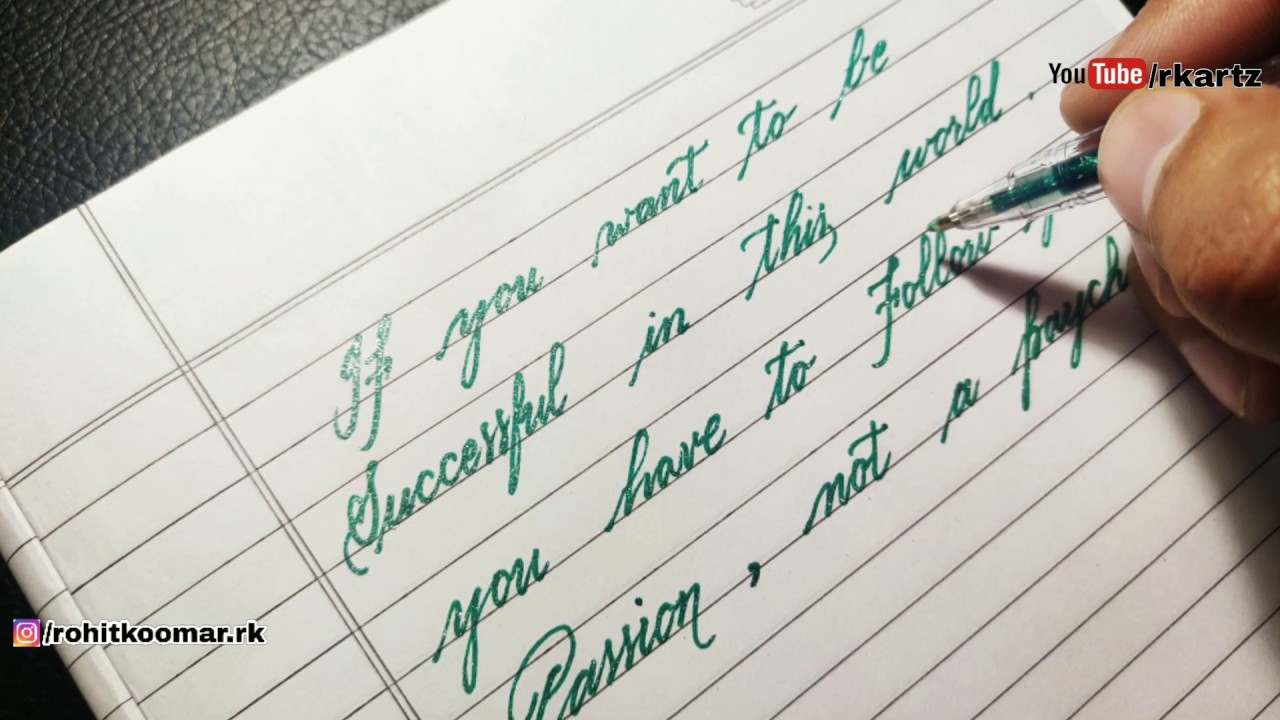 YouTube/rkartz
If you want to be
Successful in this world.
you have to Follow
Passion, not a paych
/rohitkoomar.rk